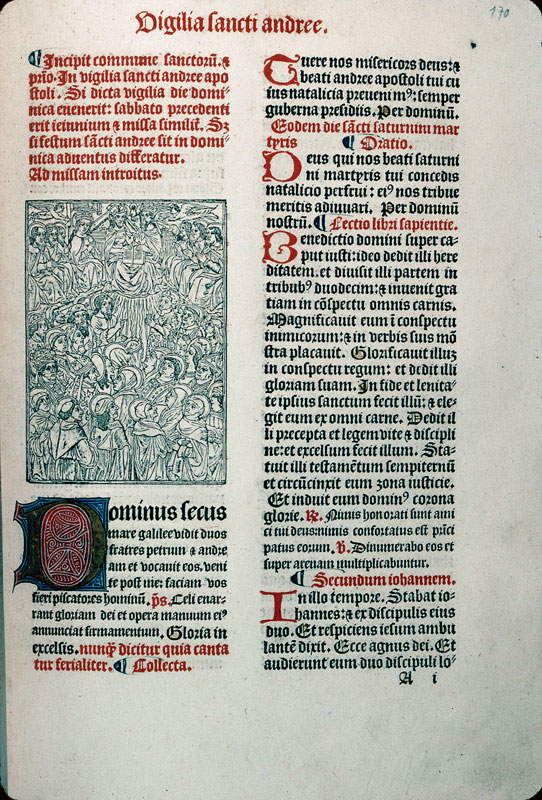 Vigilia sancti andree.
170
Incipit commune sanctorũ. ⁊
prĩo. In vigilia sancti andree apo
stoli. Si dicta vigilia die domi-
nica euenerit: sabbato precedenti
erit ieiunium ⁊ missa similit. Sꝫ
si festum sãcti andree sit in domi-
nica aduentus differatur.
Ad missam introitus.
Dominus secus
mare galilee vidit duos
fratres petrum ⁊ andre
am et vocauit eos. veni
te post me: faciam vos
fieri piscatores hominũ. p̄s. Celi enar-
rant gloriam dei et opera manuum eiꝰ
annunciat firmamentum. Gloria in
excelsis. nunq̃ dicitur quia canta
tur ferialiter. Collecta.
Tuere nos misericors deus: ⁊
beati andree apostoli tui cu
ius natalicia preuenimꝰ: semper
guberna presidiis. Per dominũ.
Eodem die sãcti saturnini mar
tyris Oratio.
Deus qui nos beati saturni
ni martyris tui concedis
natalicio perfrui: eiꝰ nos tribue
meritis adiuuari. Per dominũ
nostrũ. Lectio libri sapientie.
Benedictio domini super ca-
put iusti: ideo dedit illi here
ditatem. et diuisit illi partem in
tribubꝰ duodecim: ⁊ inuenit gra
tiam in cõspectu omnis carnis.
Magnificauit eum ĩ conspectu
inimicorum: ⁊ in verbis suis mõ
stra placauit. Glorificauit illuꝫ
in conspectu regum: et dedit illi
gloriam suam. In fide et lenita-
te ipsius sanctum fecit illũ: ⁊ ele-
git eum ex omni carne. Dedit il
li precepta et legem vite ⁊ discipli
ne: et excelsum fecit illum. Sta-
tuit illi testamẽtum sempiternũ
et circũcinxit eum zona iusticie.
Et induit eum dominꝰ corona
glorie. ℟. Nimis honorati sunt ami
ci tui deus: nimis confortatus est prĩci
patus eorum. ℣. Dinumerabo eos et
super arenam multiplicabuntur.
Secundum iohannem.
In illo tempore. Stabat io-
hannes: ⁊ ex discipulis eius
duo. Et respiciens iesum ambu
lantẽ dixit. Ecce agnus dei. Et
audierunt eum duo discipuli lo-
A i